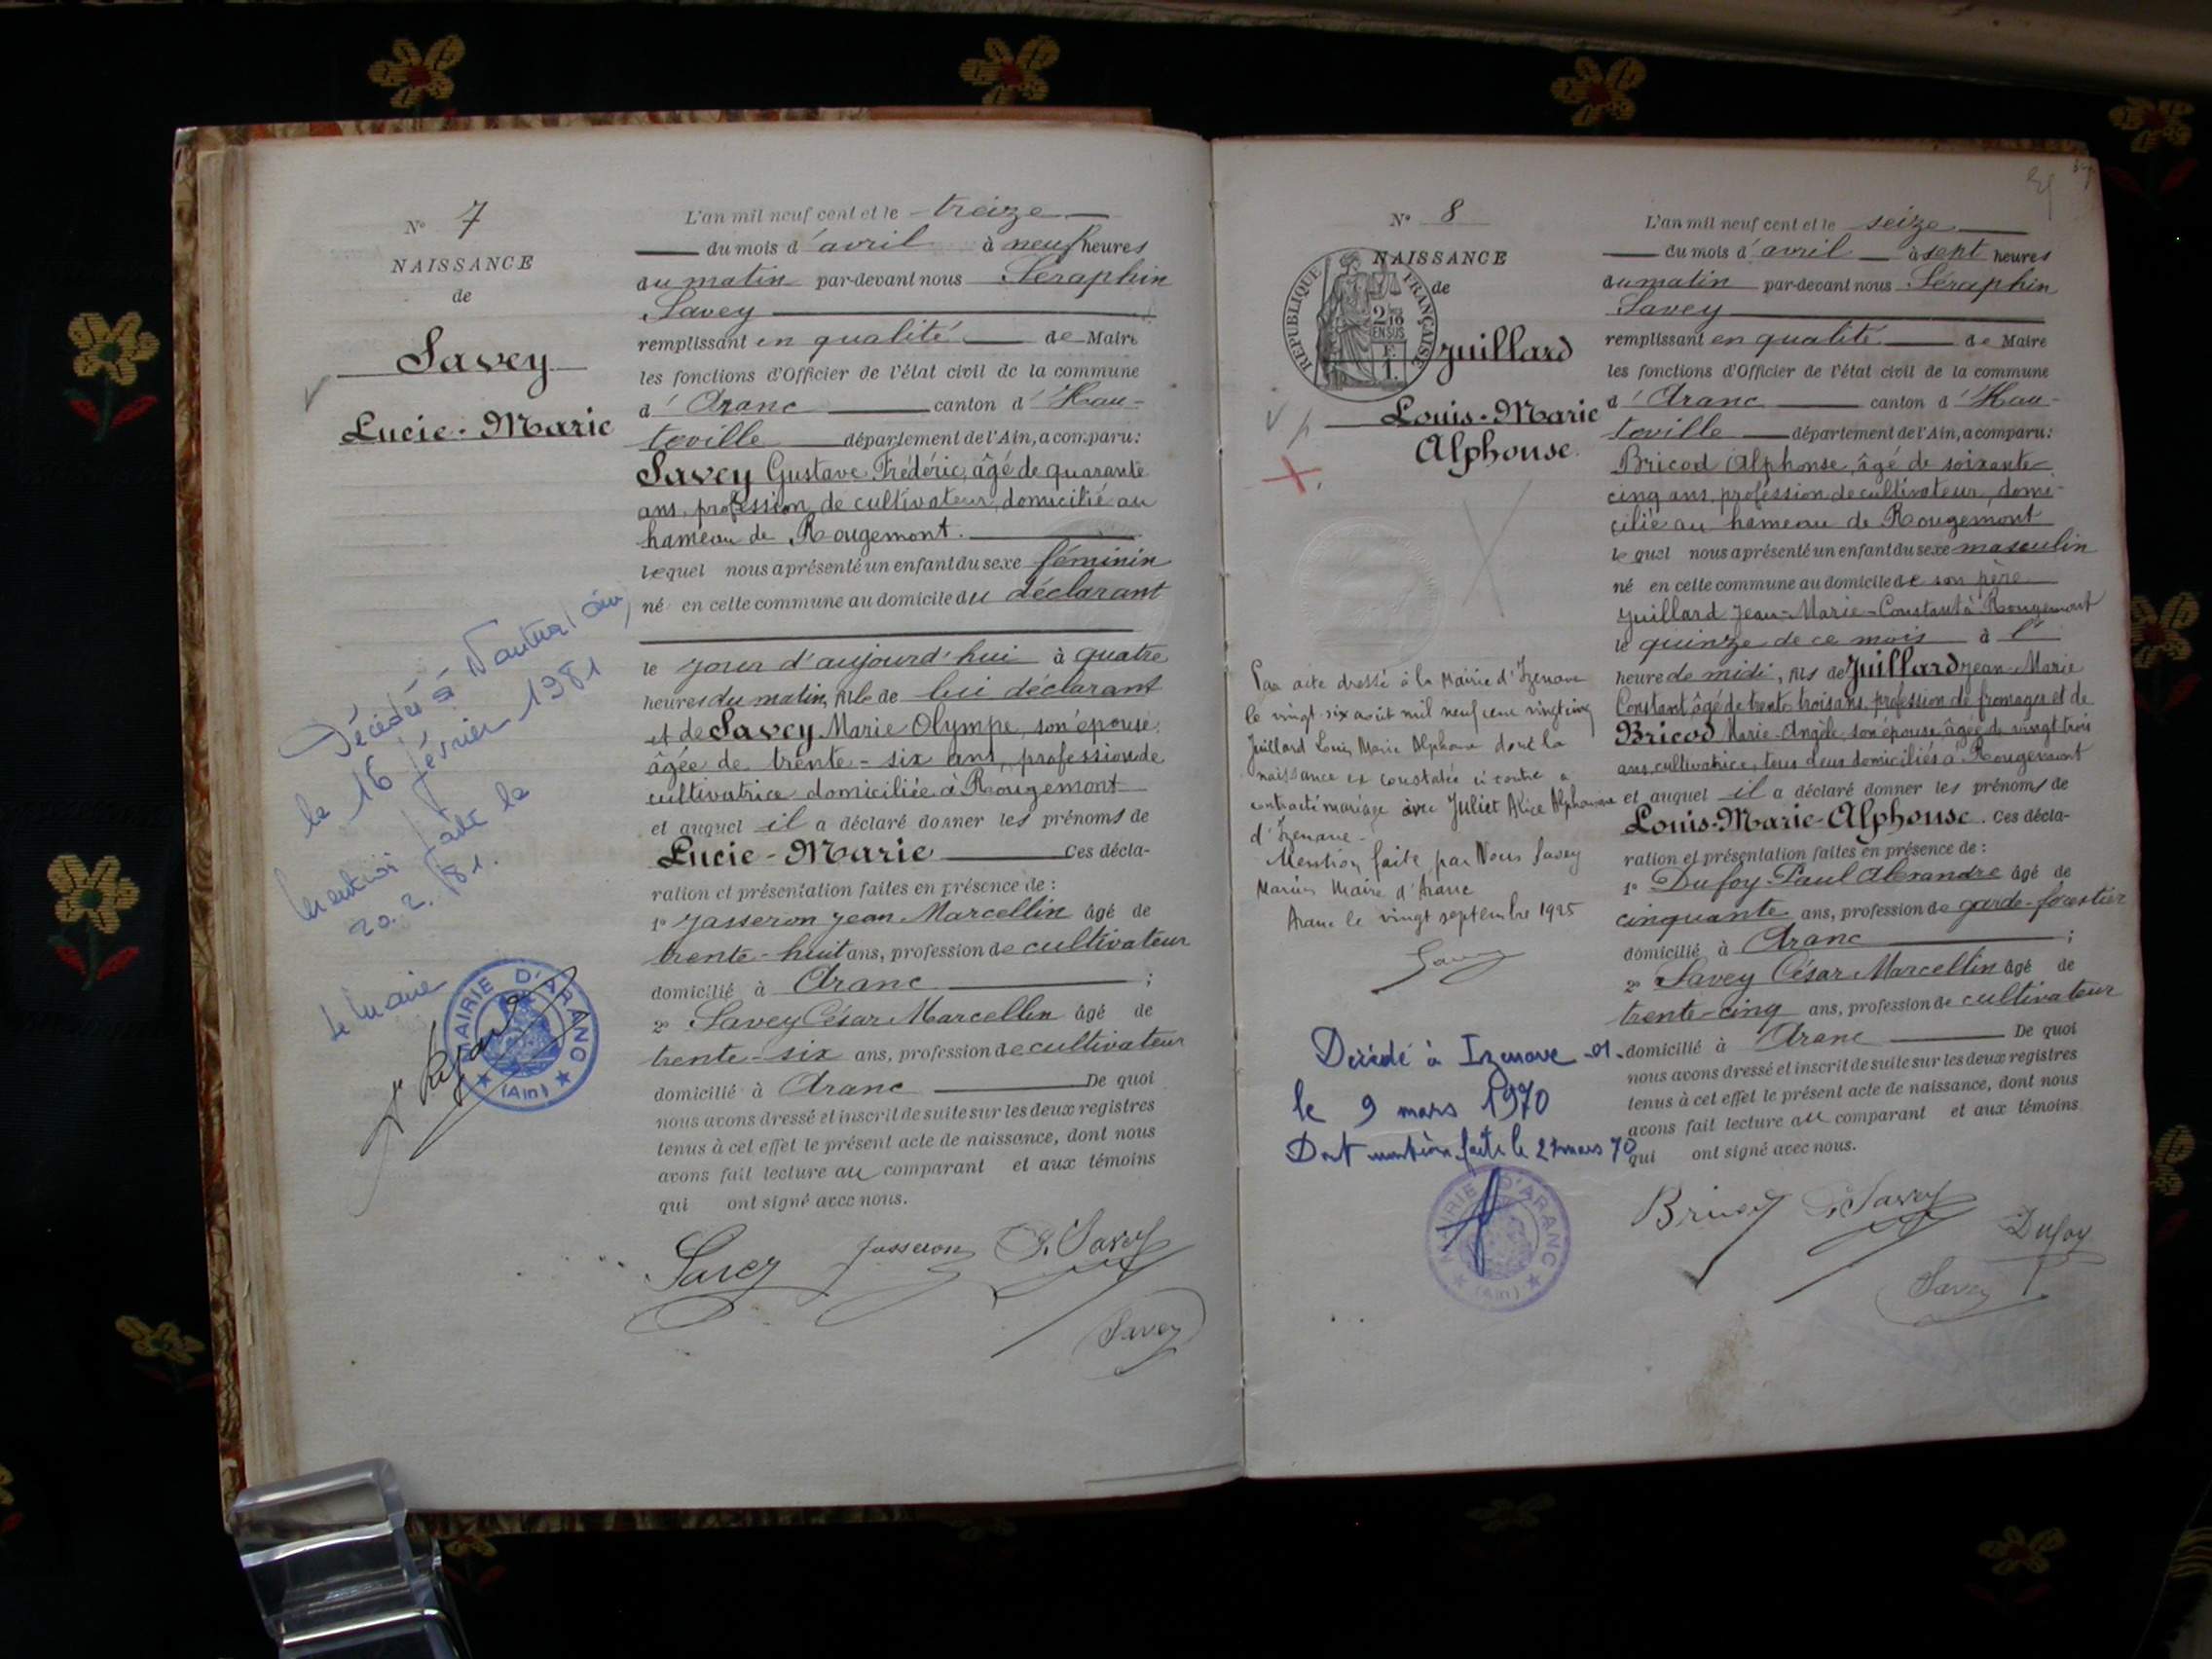 N° 7
NAISSANCE
de
Savey
Lucie-Marie
Décédée à Nantua (Ain)
le 16 février 1981
Mention faite le
20.2.81.
Le Maire
MAIRIE D'ARANC
(Ain)
L'an mil neuf cent et le treize
du mois d'avril à neuf heures
du matin par-devant nous Séraphin
Savey
remplissant en qualité de Maire
les fonctions d'Officier de l'état civil de la commune
d'Aranc canton d'Hau-
teville département de l'Ain, a comparu:
Savey Gustave Frédéric, âgé de quarante
ans, profession de cultivateur, domicilié au
hameau de Rougemont.
lequel nous a présenté un enfant du sexe féminin
né en cette commune au domicile du déclarant
le jour d'aujourd'hui à quatre
heures du matin, fille de lui déclarant
et de Savey Marie Olympe, son épouse,
âgée de trente-six ans, profession de
cultivatrice domiciliée à Rougemont
et auquel il a déclaré donner les prénoms de
Lucie-Marie Ces décla-
ration et présentation faites en présence de :
1° Jasseron Jean Marcellin âgé de
trente-huit ans, profession de cultivateur
domicilié à Aranc ;
2° Savey César Marcellin âgé de
trente-six ans, profession de cultivateur
domicilié à Aranc De quoi
nous avons dressé et inscrit de suite sur les deux registres
tenus à cet effet le présent acte de naissance, dont nous
avons fait lecture au comparant et aux témoins
qui ont signé avec nous.
Savey Jasseron S. Savey
Savey
N° 8
NAISSANCE
de
RÉPUBLIQUE FRANÇAISE
2/10
EN SUS
F.
1.
Juillard
Louis-Marie
Alphonse.
Par acte dressé à la Mairie d'Izenave
le vingt-six août mil neuf cent vingt cinq
Juillard Louis Marie Alphonse dont la
naissance est constatée ci contre a
contracté mariage avec Juliet Alice Alphonsine
d'Izenave.
Mention faite par Nous Savey
Marius Maire d'Aranc
Aranc le vingt septembre 1925
Savey
Décédé à Izenave -01-
le 9 mars 1970
Dont mention faite le 27 mars 70
MAIRIE D'ARANC
(Ain)
L'an mil neuf cent et le seize
du mois d'avril à sept heures
du matin par-devant nous Séraphin
Savey
remplissant en qualité de Maire
les fonctions d'Officier de l'état civil de la commune
d'Aranc canton d'Hau-
teville département de l'Ain, a comparu:
Bricod Alphonse, âgé de soixante-
cinq ans, profession de cultivateur, domi-
cilié au hameau de Rougemont
lequel nous a présenté un enfant du sexe masculin
né en cette commune au domicile de son père
Juillard Jean-Marie-Constant à Rougemont
le quinze de ce mois à 1re
heure de midi, fils de Juillard Jean-Marie
Constant âgé de trente trois ans, profession de fromager et de
Bricod Marie-Angèle, son épouse, âgée de vingt trois
ans, cultivatrice, tous deux domiciliés à Rougemont
et auquel il a déclaré donner les prénoms de
Louis-Marie-Alphonse. Ces décla-
ration et présentation faites en présence de :
1° Dufoy Paul Alexandre âgé de
cinquante ans, profession de garde-forestier
domicilié à Aranc ;
2° Savey César Marcellin âgé de
trente-cinq ans, profession de cultivateur
domicilié à Aranc De quoi
nous avons dressé et inscrit de suite sur les deux registres
tenus à cet effet le présent acte de naissance, dont nous
avons fait lecture au comparant et aux témoins
qui ont signé avec nous.
Bricod S. Savey Dufoy
Savey